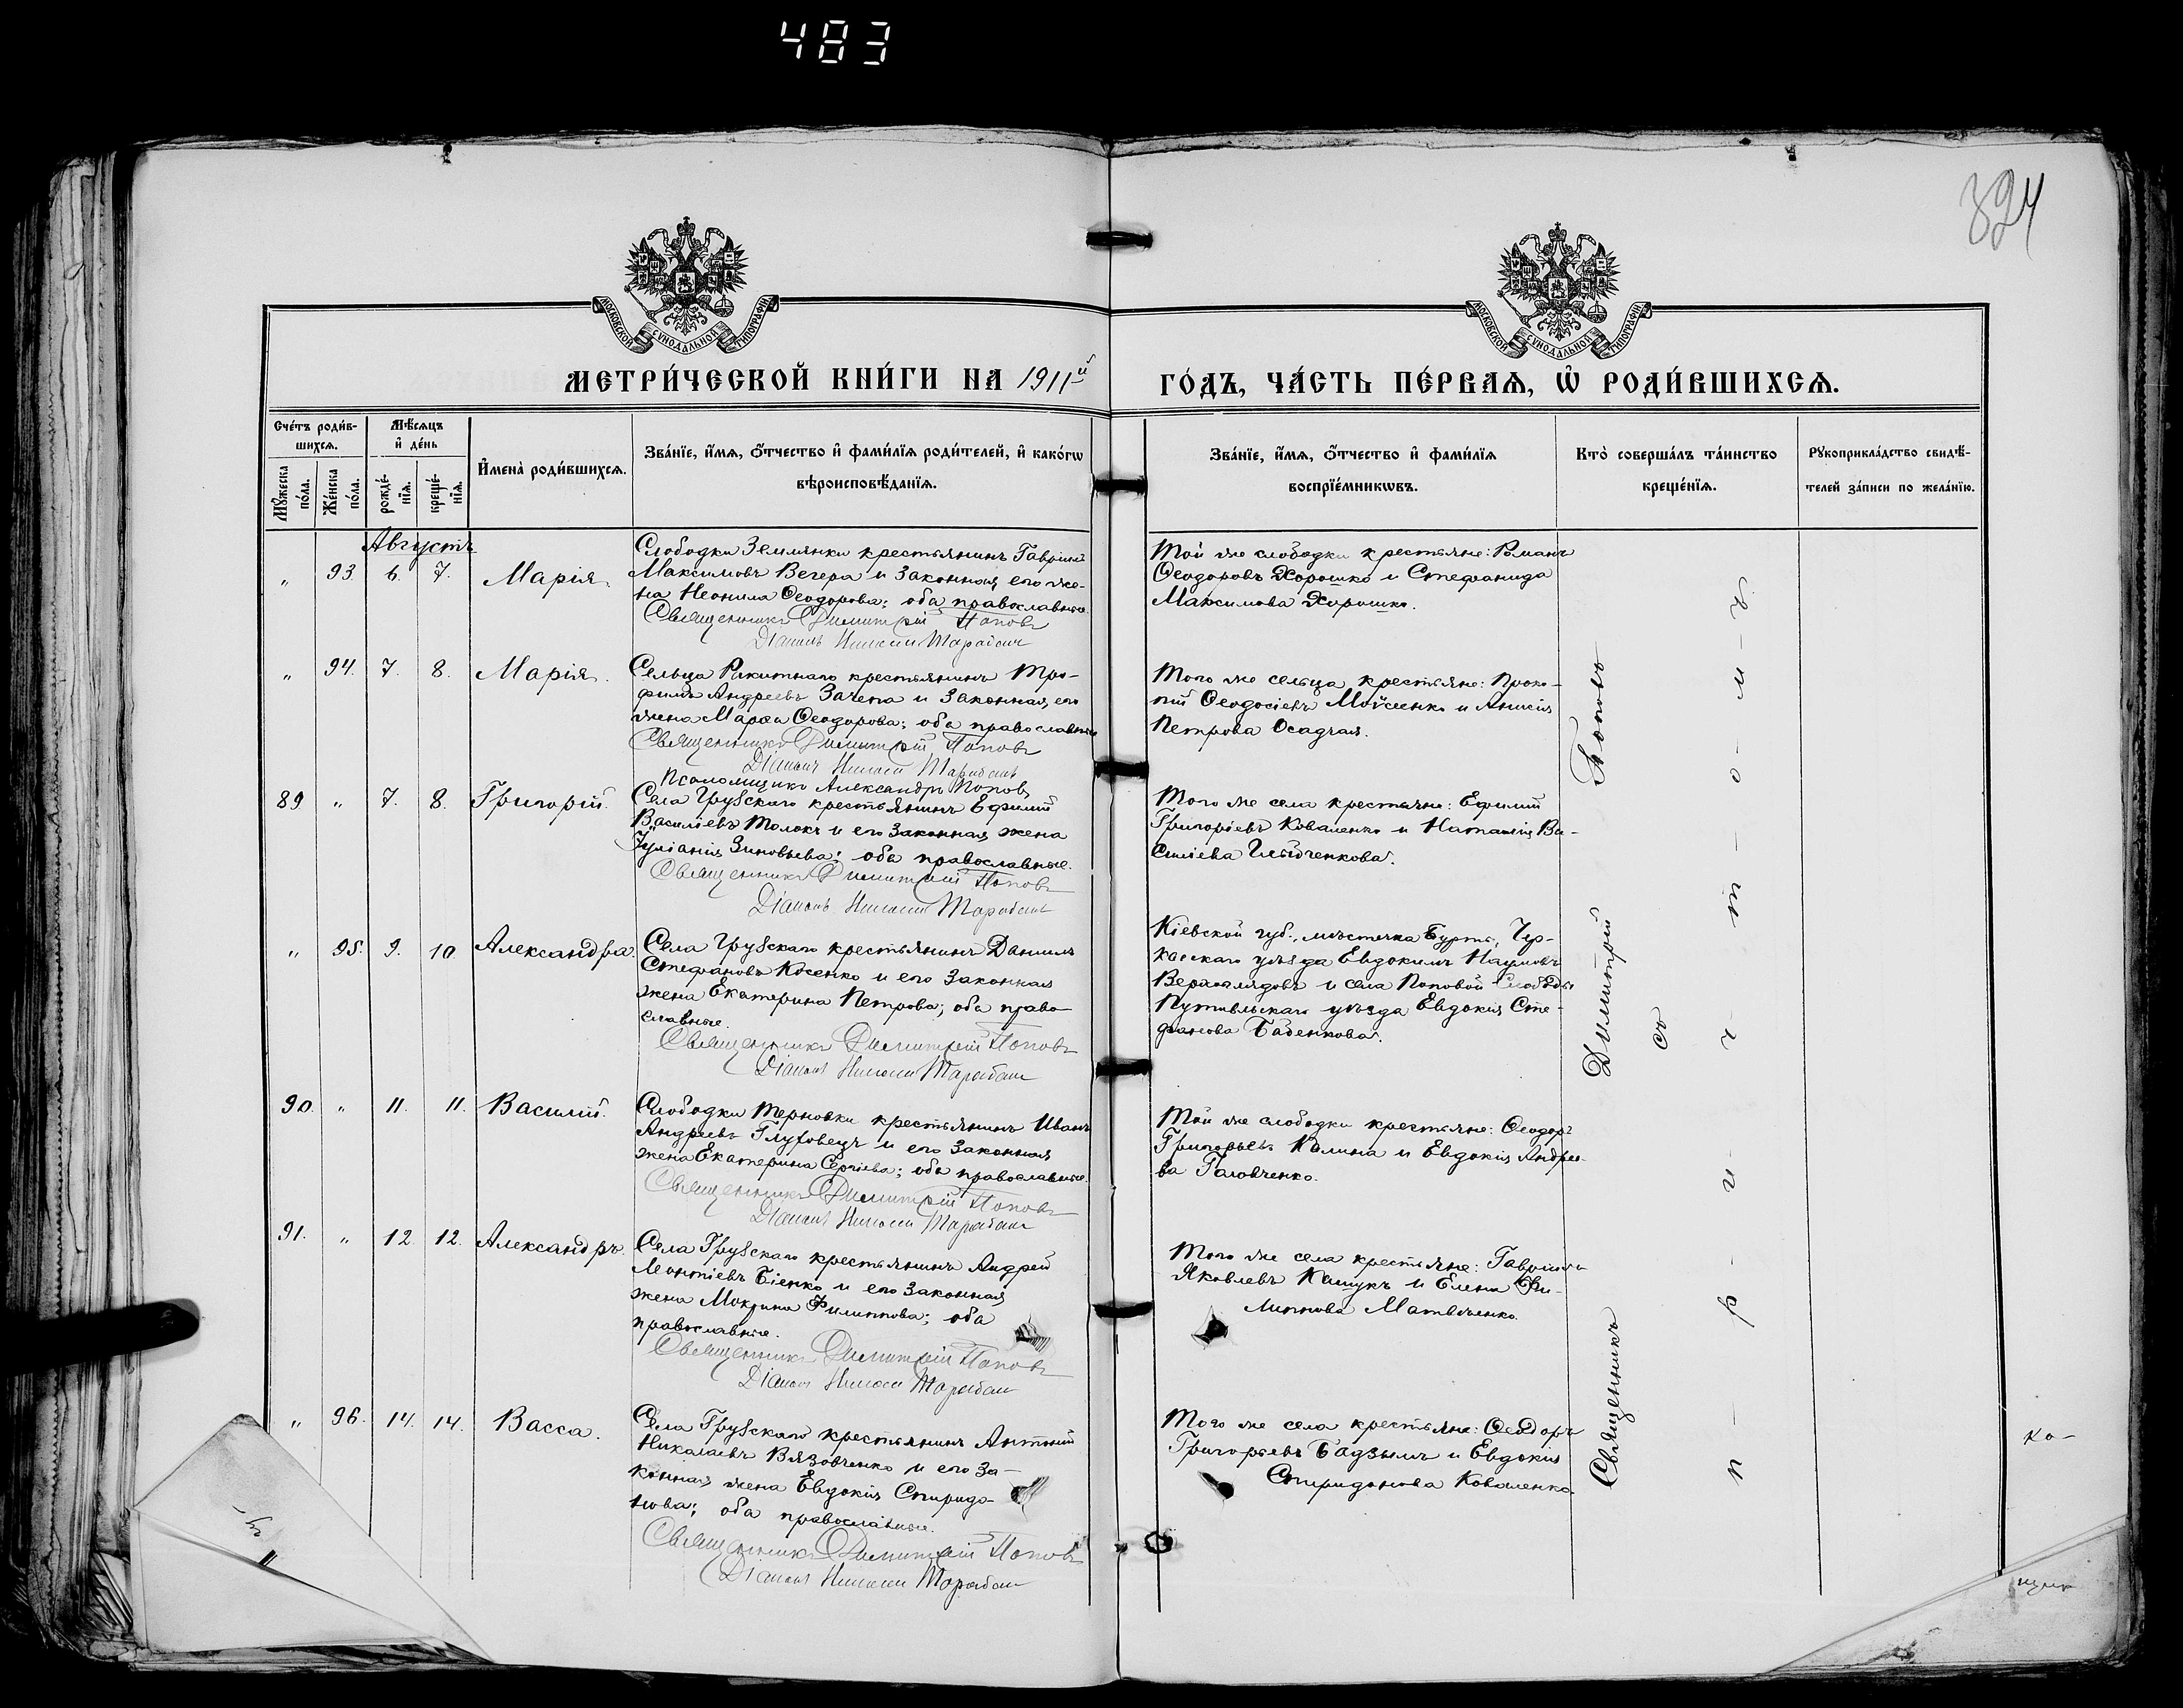 483
324
МОСКОВСКОЙ СѴНОДАЛЬНОЙ ТИПОГРАФІИ
МОСКОВСКОЙ СѴНОДАЛЬНОЙ ТИПОГРАФІИ
МЕТРИ́ЧЕСКОЙ КНИ́ГИ НА 1911й
ГО́ДЪ, ЧА́СТЬ ПЕ́РВАѦ, Ѡ҆ РОДИ́ВШИХСѦ.
Сче́тъ роди́в-
шихсѧ.
Мꙋжеска по́ла.
Же́нска по́ла.
Мѣ́сѧцъ
и҆ де́нь
рожде́-
нїѧ.
креще́-
нїѧ.
И҆мена̀ роди́вшихсѧ.
Зва́нїе, и҆́мѧ, ѻ҆́тчество и҆ фами́лїѧ роди́телей, и҆ како́гѡ
вѣроисповѣ́данїѧ.
Зва́нїе, и҆́мѧ, ѻ҆́тчество и҆ фами́лїѧ
воспрїе́мникѡвъ.
Кто̀ соверша́лъ та́инство
креще́нїѧ.
Рꙋкоприкла́дство свидѣ́-
телей за́писи по жела́нїю.
Августъ
„ 93. 6. 7. Марія.
Слободки Землянки крестьянинъ Гавріилъ
Максимовъ Вечера и законная его же-
на Неонила Ѳеодорова; оба православные.
Священникъ Димитрій Поповъ
Діаконъ
Той же слободки крестьяне: Романъ
Ѳеодоровъ Хорошко и Стефанида
Максимова Хорошко.
„ 94. 7. 8. Марія.
Сельца Ракитнаго крестьянинъ Тро-
фимъ Андреевъ Зачепа и законная его
жена Марѳа Ѳеодорова; оба православные
Священникъ Димитрій Поповъ
Діаконъ
Псаломщикъ Александръ Поповъ
Того же сельца крестьяне: Проко-
пій Ѳеодосіевъ Мойсеенко и Анисія
Петрова Осадчая.
89 „ 7. 8. Григорій.
Села Грузскаго крестьянинъ Ефимій
Василіевъ Толокъ и его законная жена
Іуліанія Зиновьева; оба православные.
Священникъ Димитрій Поповъ
Діаконъ
Того же села крестьяне: Ефимій
Григоріевъ Коваленко и Наталія Ва-
силіева
„ 95. 9. 10 Александра.
Села Грузскаго крестьянинъ Даніилъ
Стефановъ Косенко и его законная
жена Екатерина Петрова; оба право-
славные.
Священникъ Димитрій Поповъ
Діаконъ
Кіевской губ., мѣстечка Бурты, Чер-
касскаго уѣзда Евдокимъ Наумовъ
и села Поповой Слободы
Путивльскаго уѣзда Евдокія Сте-
фанова Бабенкова.
90. „ 11. 11. Василій.
Слободки Терновки крестьянинъ Иванъ
Андреевъ Глуховецъ и его законная
жена Екатерина Сергіева; оба православные.
Священникъ Димитрій Поповъ
Діаконъ
Той же слободки крестьяне: Ѳеодоръ
Григорьевъ Калина и Евдокія Андрее-
ва Головченко.
91. „ 12 12. Александръ.
Села Грузскаго крестьянинъ Андрей
Леонтіевъ Біенко и его законная
жена Мокрина Филиппова; оба
православные.
Священникъ Димитрій Поповъ
Діаконъ
Того же села крестьяне: Гавріилъ
Яковлевъ Кашукъ и Елена Фи-
липпова Матвѣенко.
„ 96. 14. 14. Васса.
Села Грузскаго крестьянинъ Антоній
Николаевъ Вязовченко и его за-
конная жена Евдокія Спиридо-
нова; оба православные.
Священникъ Димитрій Поповъ
Діаконъ
Того же села крестьяне: Ѳеодоръ
Григорьевъ Бадзымъ и Евдокія
Спиридонова Коваленко
Священникъ Димитрій Поповъ
съ
п-р-и-ч-т-о-м-ъ
ко-